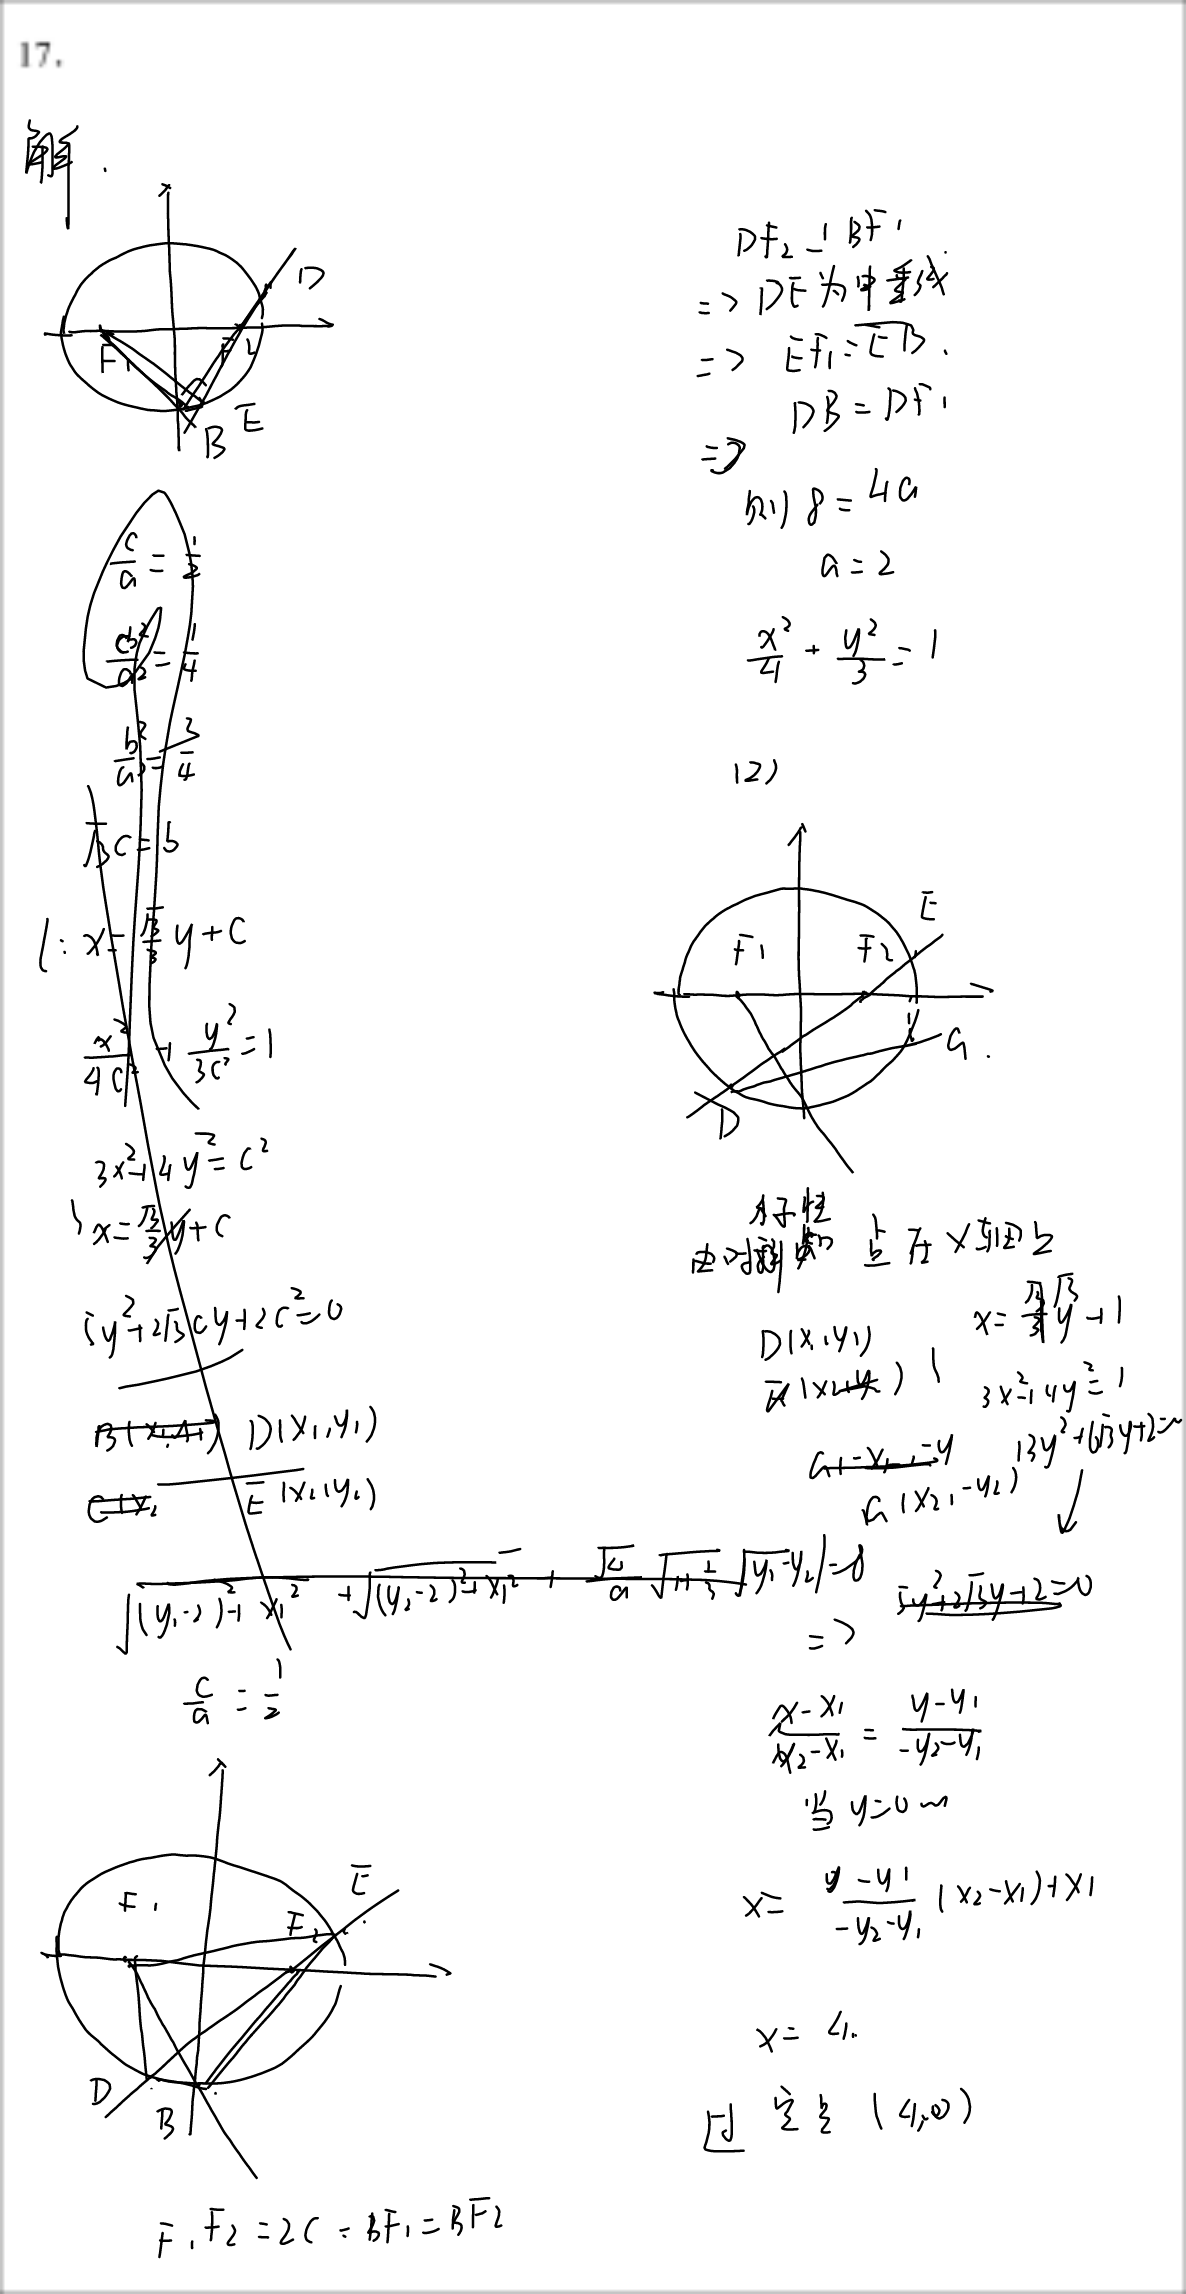 17.
解.
D
F₁
F₂
B
E
c/a = 1/2
c²/a² = 1/4
b²/a² = 3/4
√3c = b
l: x = √3/3 y + c
x²/4c² + y²/3c² = 1
3x²+4y² = c²
x = √3/3 y + c
5y²+2√3cy+2c²=0
D(x₁,y₁)
E(x₂,y₂)
√((y₁-2)²+x₁²) + √((y₂-2)²+x₁²) +
c/a = 1/2
F₁
F₂
E
D
B
F₁F₂ = 2c = BF₁ = BF₂
DF₂⊥BF₁
=> DE为中垂线
=> EF₁=EB.
DB = DF₁
=>
则 8 = 4a
a = 2
x²/4 + y²/3 = 1
(2)
E
F₁
F₂
G.
D
点在x轴上
x = √3/3 y + 1
D(x₁y₁)
3x²+4y²=1
13y²+6√3y+2=0
G(x₂,-y₂)
5y²+2√3y+2=0
=>
(x-x₁)/(x₂-x₁) = (y-y₁)/(-y₂-y₁)
当y=0时
x = (y-y₁)/(-y₂-y₁) (x₂-x₁)+x₁
x = 4.
过定点(4,0)